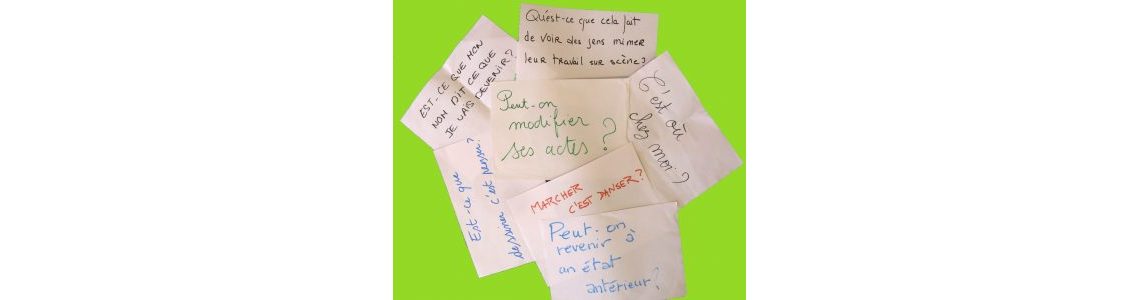 Qu'est-ce que cela fait
de voir des jens mimer
leur travail sur scène?
EST-CE QUE MON
NOM DIT CE QUE
JE VAIS DEVENIR?
Peut-on
modifier
ses actes?
C'est où
chez moi?
Est-ce que
dessiner c'est penser?
MARCHER
C'EST DANSER?
Peut-on
revenir à
un état
antérieur?